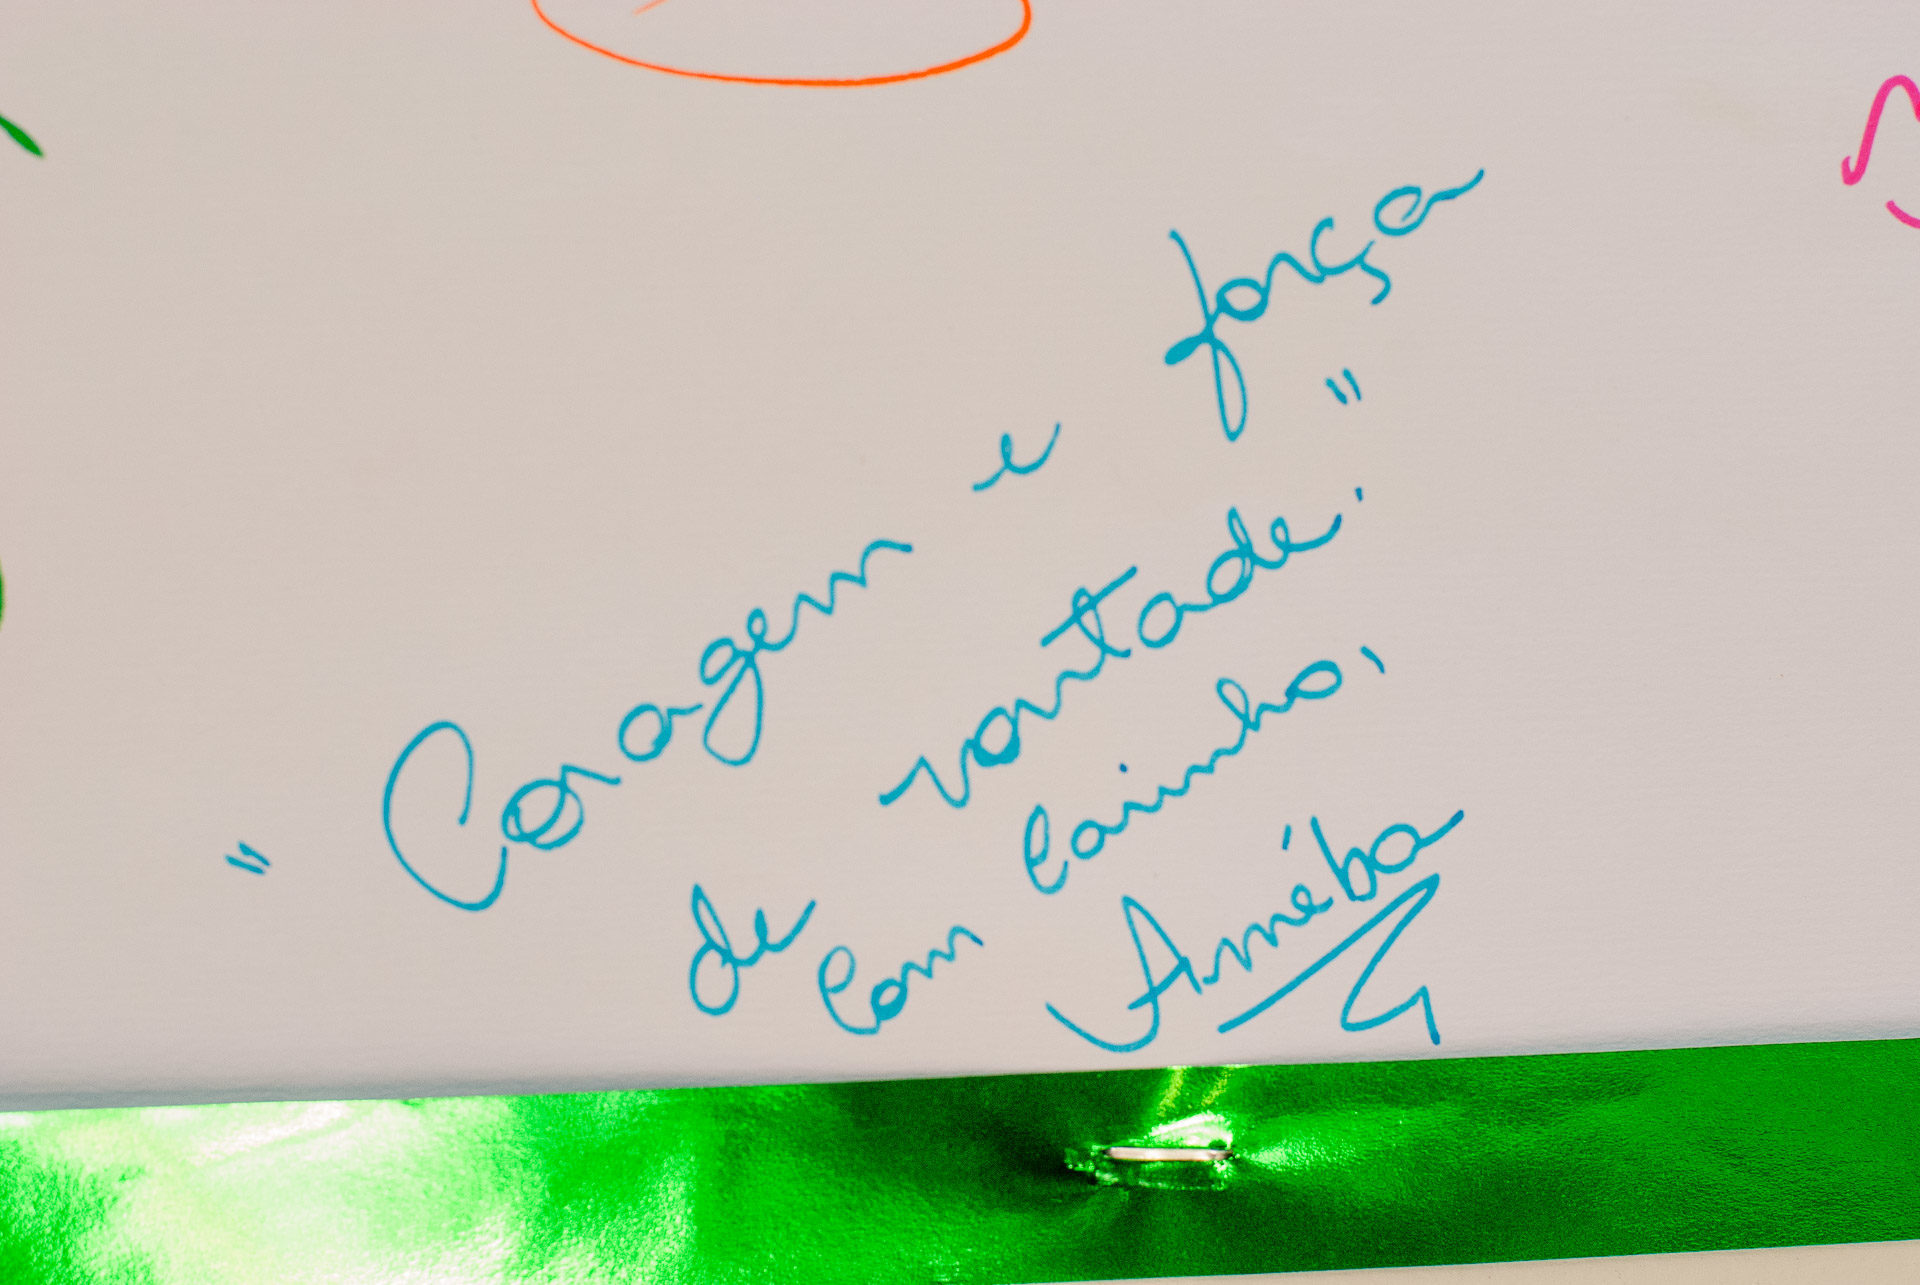 "Coragem e força
de vontade."
Com Carinho,
Améba